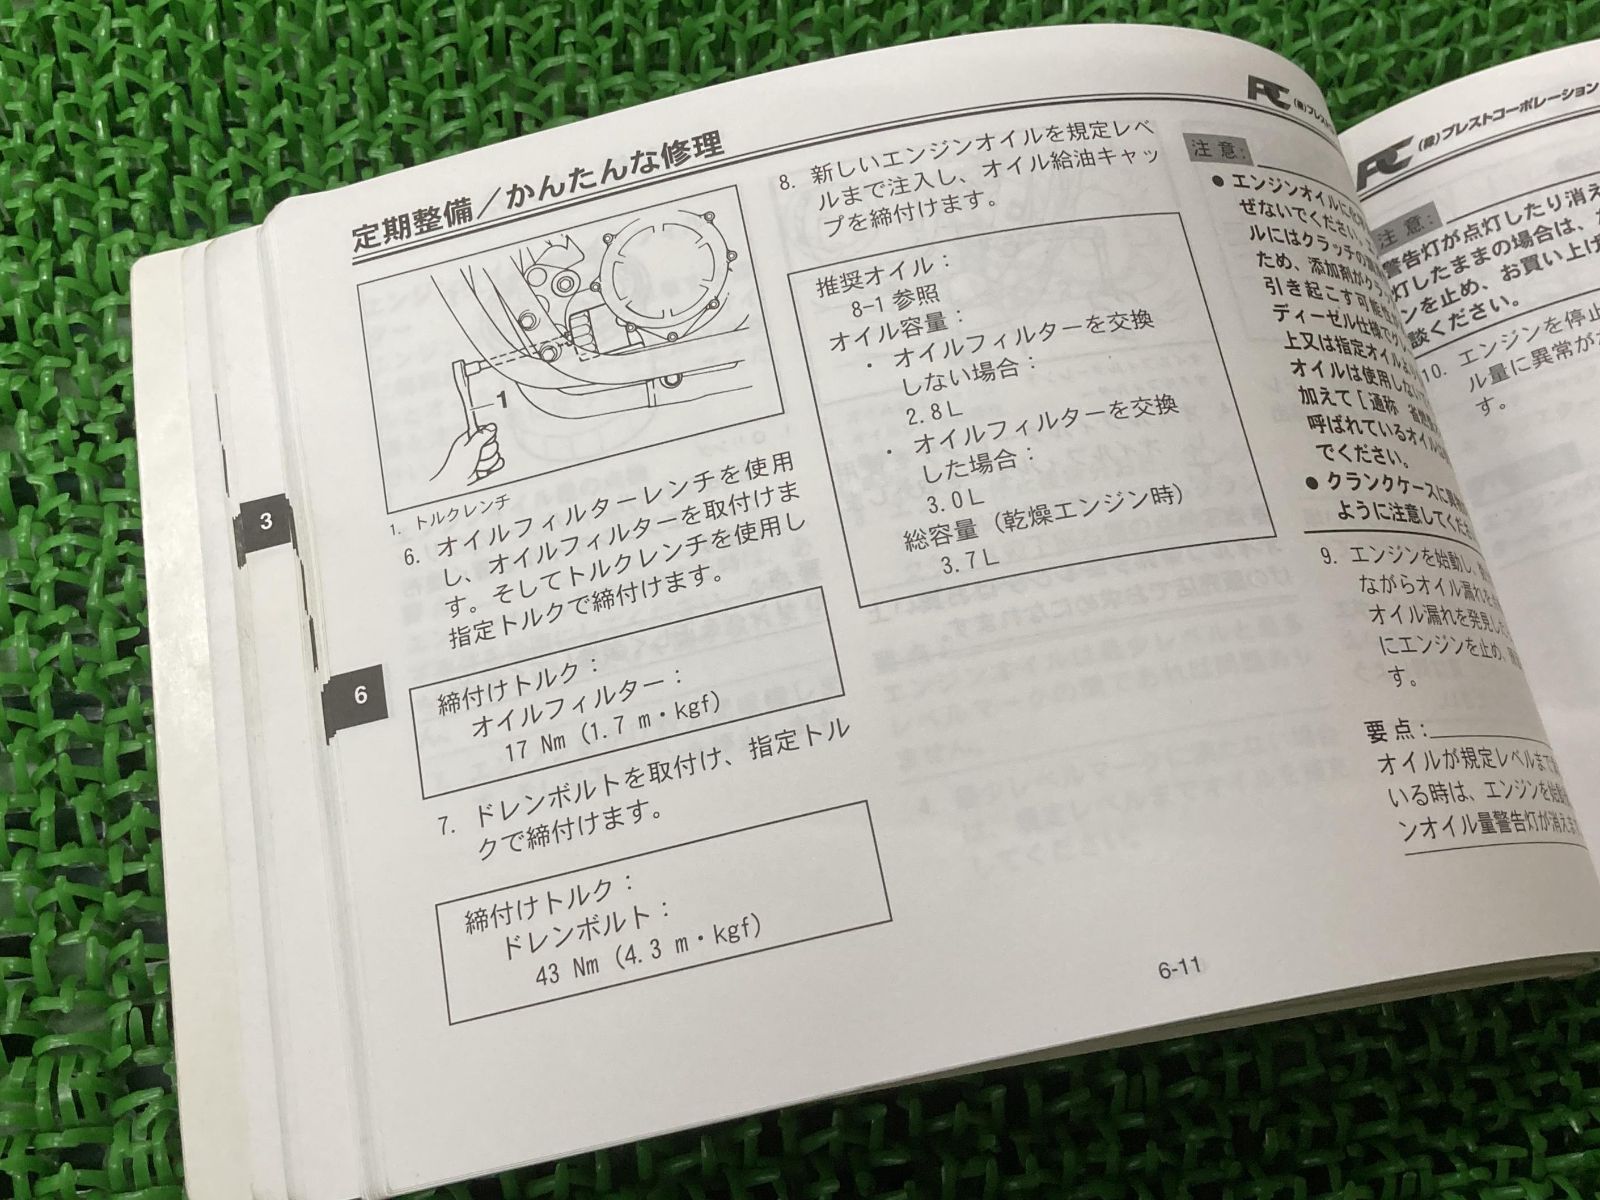 定期整備／かんたんな修理
1
1. トルクレンチ
6. オイルフィルターレンチを使用
し、オイルフィルターを取付けま
す。そしてトルクレンチを使用し
指定トルクで締付けます。
締付けトルク：
オイルフィルター：
17 Nm (1.7 m・kgf)
7. ドレンボルトを取付け、指定トル
クで締付けます。
締付けトルク：
ドレンボルト：
43 Nm (4.3 m・kgf)
3
6
8. 新しいエンジンオイルを規定レベ
ルまで注入し、オイル給油キャッ
プを締付けます。
推奨オイル：
8-1 参照
オイル容量：
・ オイルフィルターを交換
しない場合：
2.8L
・ オイルフィルターを交換
した場合：
3.0L
総容量（乾燥エンジン時）
3.7L
(株)プレスト
注 意：
● エンジンオイルに
ぜないでください。
ルにはクラッチの
ため、添加剤がクラ
引き起こす可能性
ディーゼル仕様
上又は指定オイル
オイルは使用しない
加えて［通称
呼ばれているオイル
でください。
● クランクケースに異
ように注意してくださ
9. エンジンを始動し、
ながらオイル漏れを
オイル漏れを発見し
にエンジンを止め、
す。
要 点：
オイルが規定レベルまで
いる時は、エンジンを始動
ンオイル量警告灯が消えま
6-11
(株)プレストコーポレーション
注 意：
警告灯が点灯したり消え
灯したままの場合は、
ンを止め、お買い上げ
談ください。
10. エンジンを停止
ル量に異常が
す。